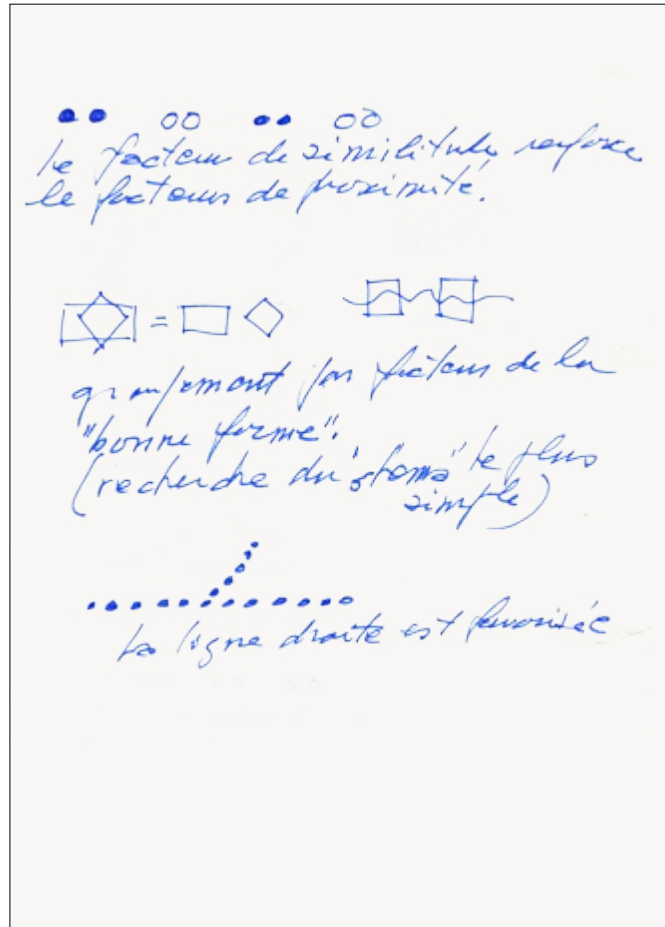 Le facteur de similitude renforce
le facteurs de proximité.
groupement par facteur de la
"bonne forme".
(recherche du le plus
simple)
La ligne droite est favorisée